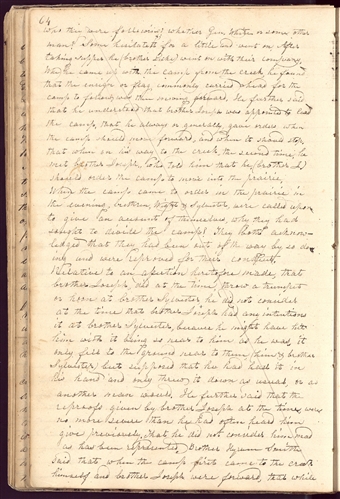 64
who they were following? whether Gen. Whiton or some other
man? Some hesitated for a little and went on. After
taking supper he (brother Lyke) went on with their company,
When he came up with the camp from the creek, he found
that the ensign or flag, commonly carried where for the
camp to follow, was then moving forward. He further said
that he understood that brother Joseph was appointed to lead
the camp, that he always or generally gave orders when
the camp should move forward, and when it should stop,
that when on his way to the creek, the second time, he
met brother Joseph, who told him that he (brother L)
should order the camp to move into the prairie.
When the camp came to order in the prairie in
the evening, brethren, Wight & Sylvester, were called upon
to give an account of themselves, why they had
sought to divide the camp? They both acknow-
ledged that they had been out of the way by so do-
ing and were reproved for their conduct.
Relative to an assertion heretofore made, that
brother Joseph, did at the time, throw a trumpet
or horn at brother Sylvester he did not consider
at the time that brother Joseph had any intentions
it at brother Sylvester, because he might have hit
him with it being as near to him as he was, it
only fell to the ground near to them (him & brother
Sylvester) but supposed that he had held it in
his hand and only threw it down as usual, or as
another man would. He further said that the
reproofs given by brother Joseph at the time, were
no more severe than he had often heard him
give previously, that he did not consider him mad
as has been represented. Brother Hyrum Smith
said that, when the camp first came to the creek
himself and brother Joseph were forward, that while